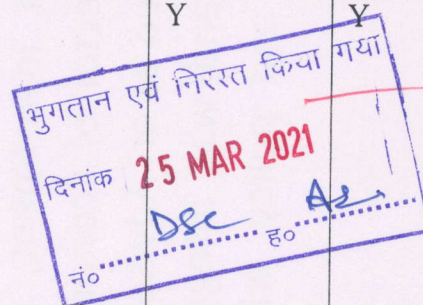 Y Y
भुगतान एवं निररत किया गया
दिनांक 25 MAR 2021
DSC
नं० ह०